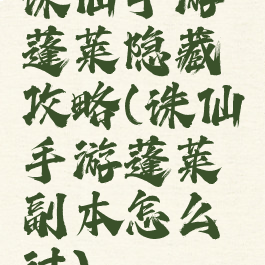 诛仙手游
蓬莱隐藏
攻略(诛仙
手游蓬莱
副本怎么